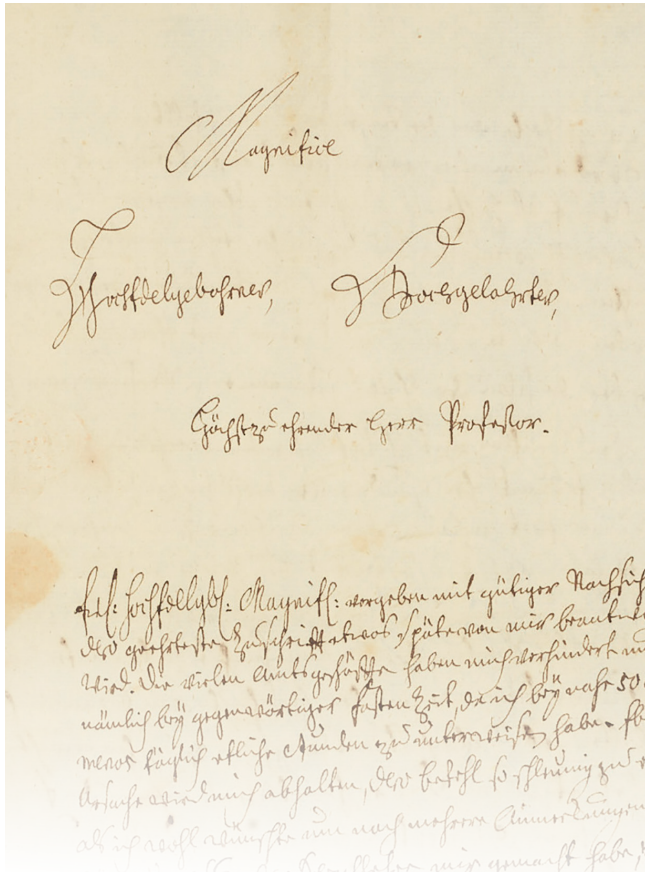 Magnifice
Hochedelgebohrner, Hochgelahrter,
Höchstzu ehrender Herr Professor.
Hochedelgb: Magnif: vergeben mit gütiger Nachsich
dero geehrteste Zuschrifft etwas späte von mir beantwo
wird. Die vielen Amtsgeschäffte haben mich verhindert
nämlich bey gegenwärtiger Fasten Zeit, da ich bey nahe 50
täglich etliche Stunden zu unterweisen habe.
Ursache wird mich abhalten, dero befehl so schleunig zu
als ich wohl wünschte um noch mehrere Anmerckungen
mir gemacht habe,